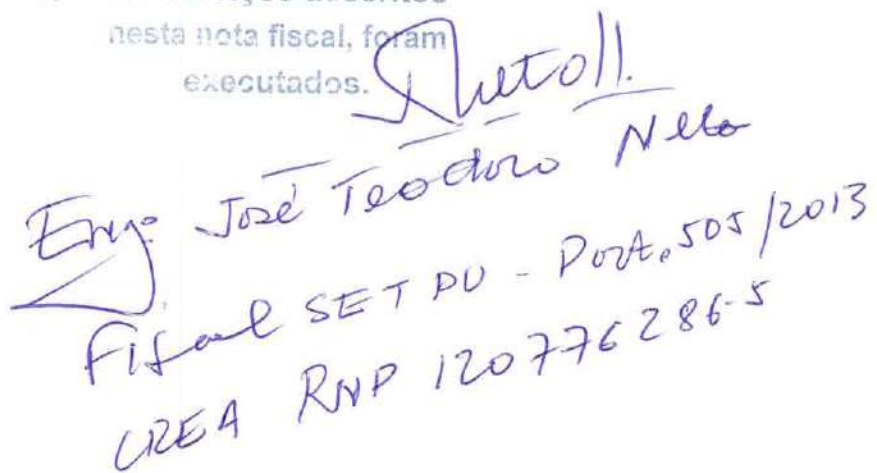 nesta nota fiscal, foram
executados.
Engº José Teodoro Neto
Fiscal SETPU - Port. 505/2013
CREA RNP 120776286-5